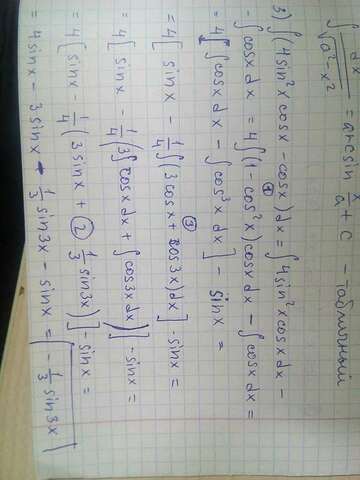 ∫ dx/√(a²-x²) = arcsin x/a + C - табличный
3) ∫(4sin²x cosx - cosx)dx = ∫4sin²x cosx dx -
①
- ∫cosx dx = 4∫(1-cos²x)cosx dx - ∫cosx dx =
= 4[∫cosx dx - ∫cos³x dx] - sinx =
= 4[sinx - 1/4∫(3cosx + cos3x)dx] - sinx =
③
= 4[sinx - 1/4(3∫cosx dx + ∫cos3x dx)] - sinx =
= 4[sinx - 1/4(3sinx + 1/3 sin3x)] - sinx =
②
= 4sinx - 3sinx - 1/3 sin3x - sinx = -1/3 sin3x